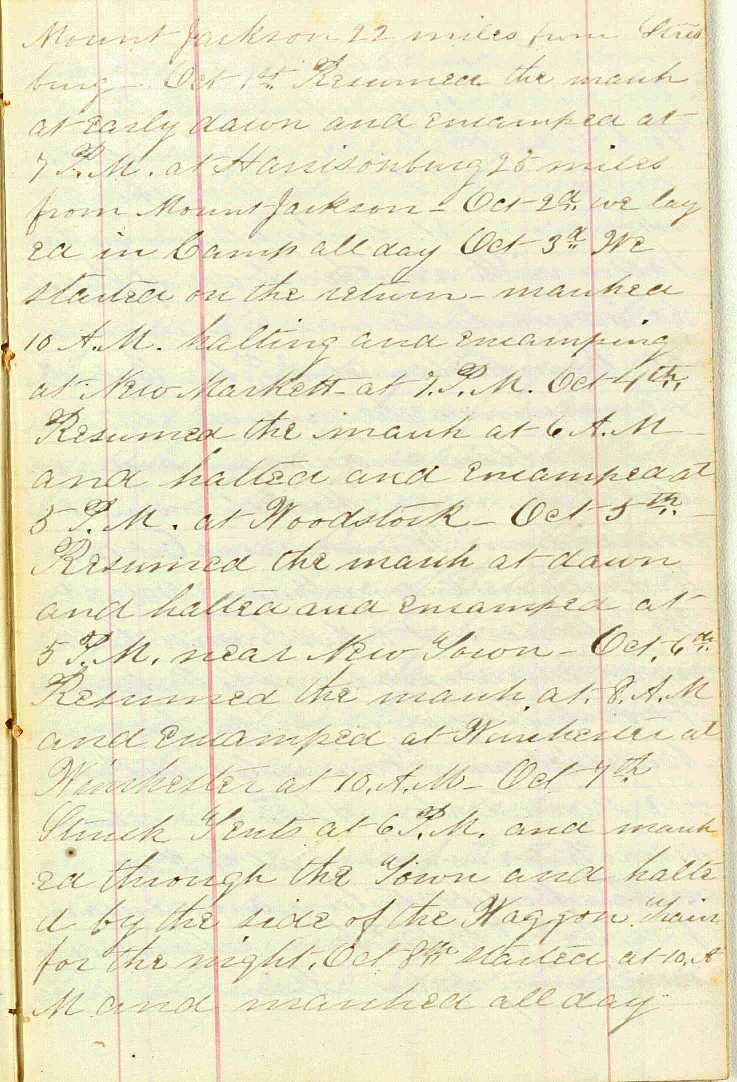 Mount Jackson 22 miles from Stras
burg - Oct 1st. Resumed the march
at early dawn and encamped at
7 P.M. at Harrisonburg 25 miles
from Mount Jackson - Oct 2d. we lay
ed in Camp all day Oct 3d. We
started on the return - marched
10 A.M. halting and encamping
at New Markett - at 7. P.M. Oct 4th.
Resumed the march at 6 A.M
and halted and encamped at
5 P.M. at Woodstock - Oct 5th. -
Resumed the march at dawn
and halted and encamped at
5 P.M. near New Town - Oct. 6th.
Resumed the march at. 8. A.M
and encamped at Winchester at
Winchester at 10. A.M - Oct 7th
Struck Tents at 6 P.M. and march
ed through the Town and halte
d by the side of the Waggon Train
for the night. Oct 8th started at 10. A
M. and marched all day